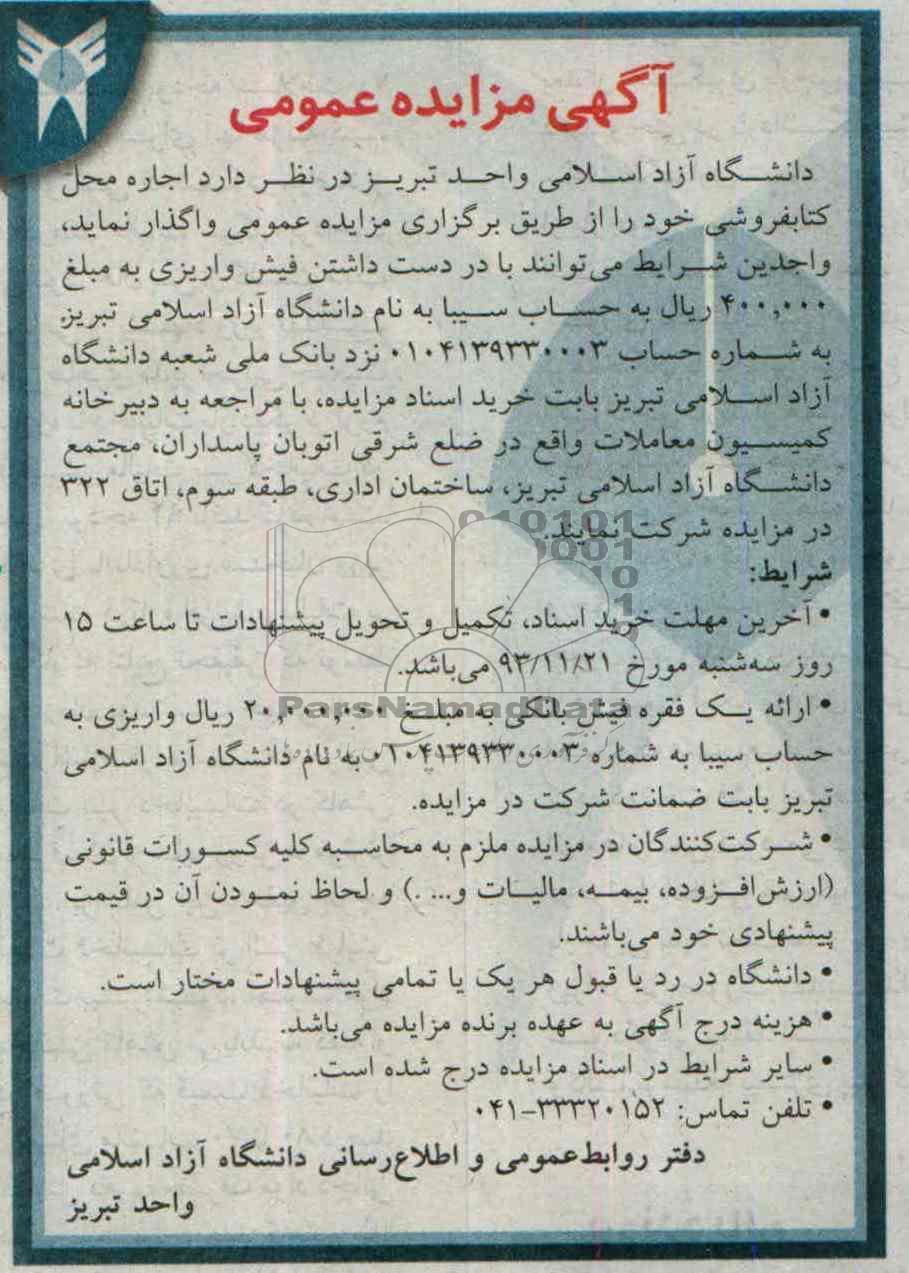 آگهی مزایده عمومی
دانشگاه آزاد اسلامی واحد تبریز در نظر دارد اجاره محل
کتابفروشی خود را از طریق برگزاری مزایده عمومی واگذار نماید،
واجدین شرایط می‌توانند با در دست داشتن فیش واریزی به مبلغ
۴۰۰,۰۰۰ ریال به حساب سیبا به نام دانشگاه آزاد اسلامی تبریز
به شماره حساب ۰۱۰۴۱۳۹۳۳۰۰۰۳ نزد بانک ملی شعبه دانشگاه
آزاد اسلامی تبریز بابت خرید اسناد مزایده، با مراجعه به دبیرخانه
کمیسیون معاملات واقع در ضلع شرقی اتوبان پاسداران، مجتمع
دانشگاه آزاد اسلامی تبریز، ساختمان اداری، طبقه سوم، اتاق ۳۲۲
در مزایده شرکت نمایند.
شرایط:
• آخرین مهلت خرید اسناد، تکمیل و تحویل پیشنهادات تا ساعت ۱۵
روز سه‌شنبه مورخ ۹۳/۱۱/۲۱ می‌باشد.
• ارائه یک فقره فیش بانکی به مبلغ ۲۰,۰۰۰,۰۰۰ ریال واریزی به
حساب سیبا به شماره ۰۱۰۴۱۳۹۳۳۰۰۰۳ به نام دانشگاه آزاد اسلامی
تبریز بابت ضمانت شرکت در مزایده.
• شرکت‌کنندگان در مزایده ملزم به محاسبه کلیه کسورات قانونی
(ارزش‌افزوده، بیمه، مالیات و... .) و لحاظ نمودن آن در قیمت
پیشنهادی خود می‌باشند.
• دانشگاه در رد یا قبول هر یک یا تمامی پیشنهادات مختار است.
• هزینه درج آگهی به عهده برنده مزایده می‌باشد.
• سایر شرایط در اسناد مزایده درج شده است.
• تلفن تماس: ۳۳۳۲۰۱۵۲-۰۴۱
دفتر روابط‌عمومی و اطلاع‌رسانی دانشگاه آزاد اسلامی
واحد تبریز
ParsNamadData